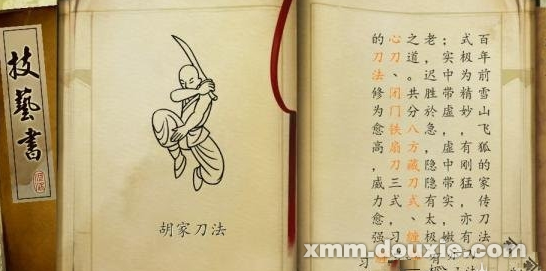 技藝書
胡家刀法
百年前雪山飞狐的家传刀
式极为精妙，有刚猛，亦有
；实中带虚，虚中带实，嫩
老，迟胜於急，隐隐有太极
之道。共分八方藏刀式、缠
心刀、闭门铁扇刀三式，习
的刀法修为愈高，威力愈强
习
xmm.douxie.com